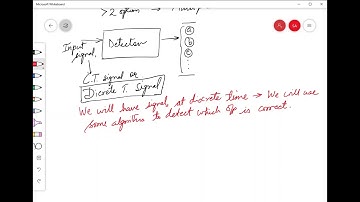 Microsoft Whiteboard
>2 option →
Input signal.
Detection
a
b
c
C.T signal or
Discrete T. Signal
We will have signal at discrete time → We will use
some algorithm to detect which o/p is correct.